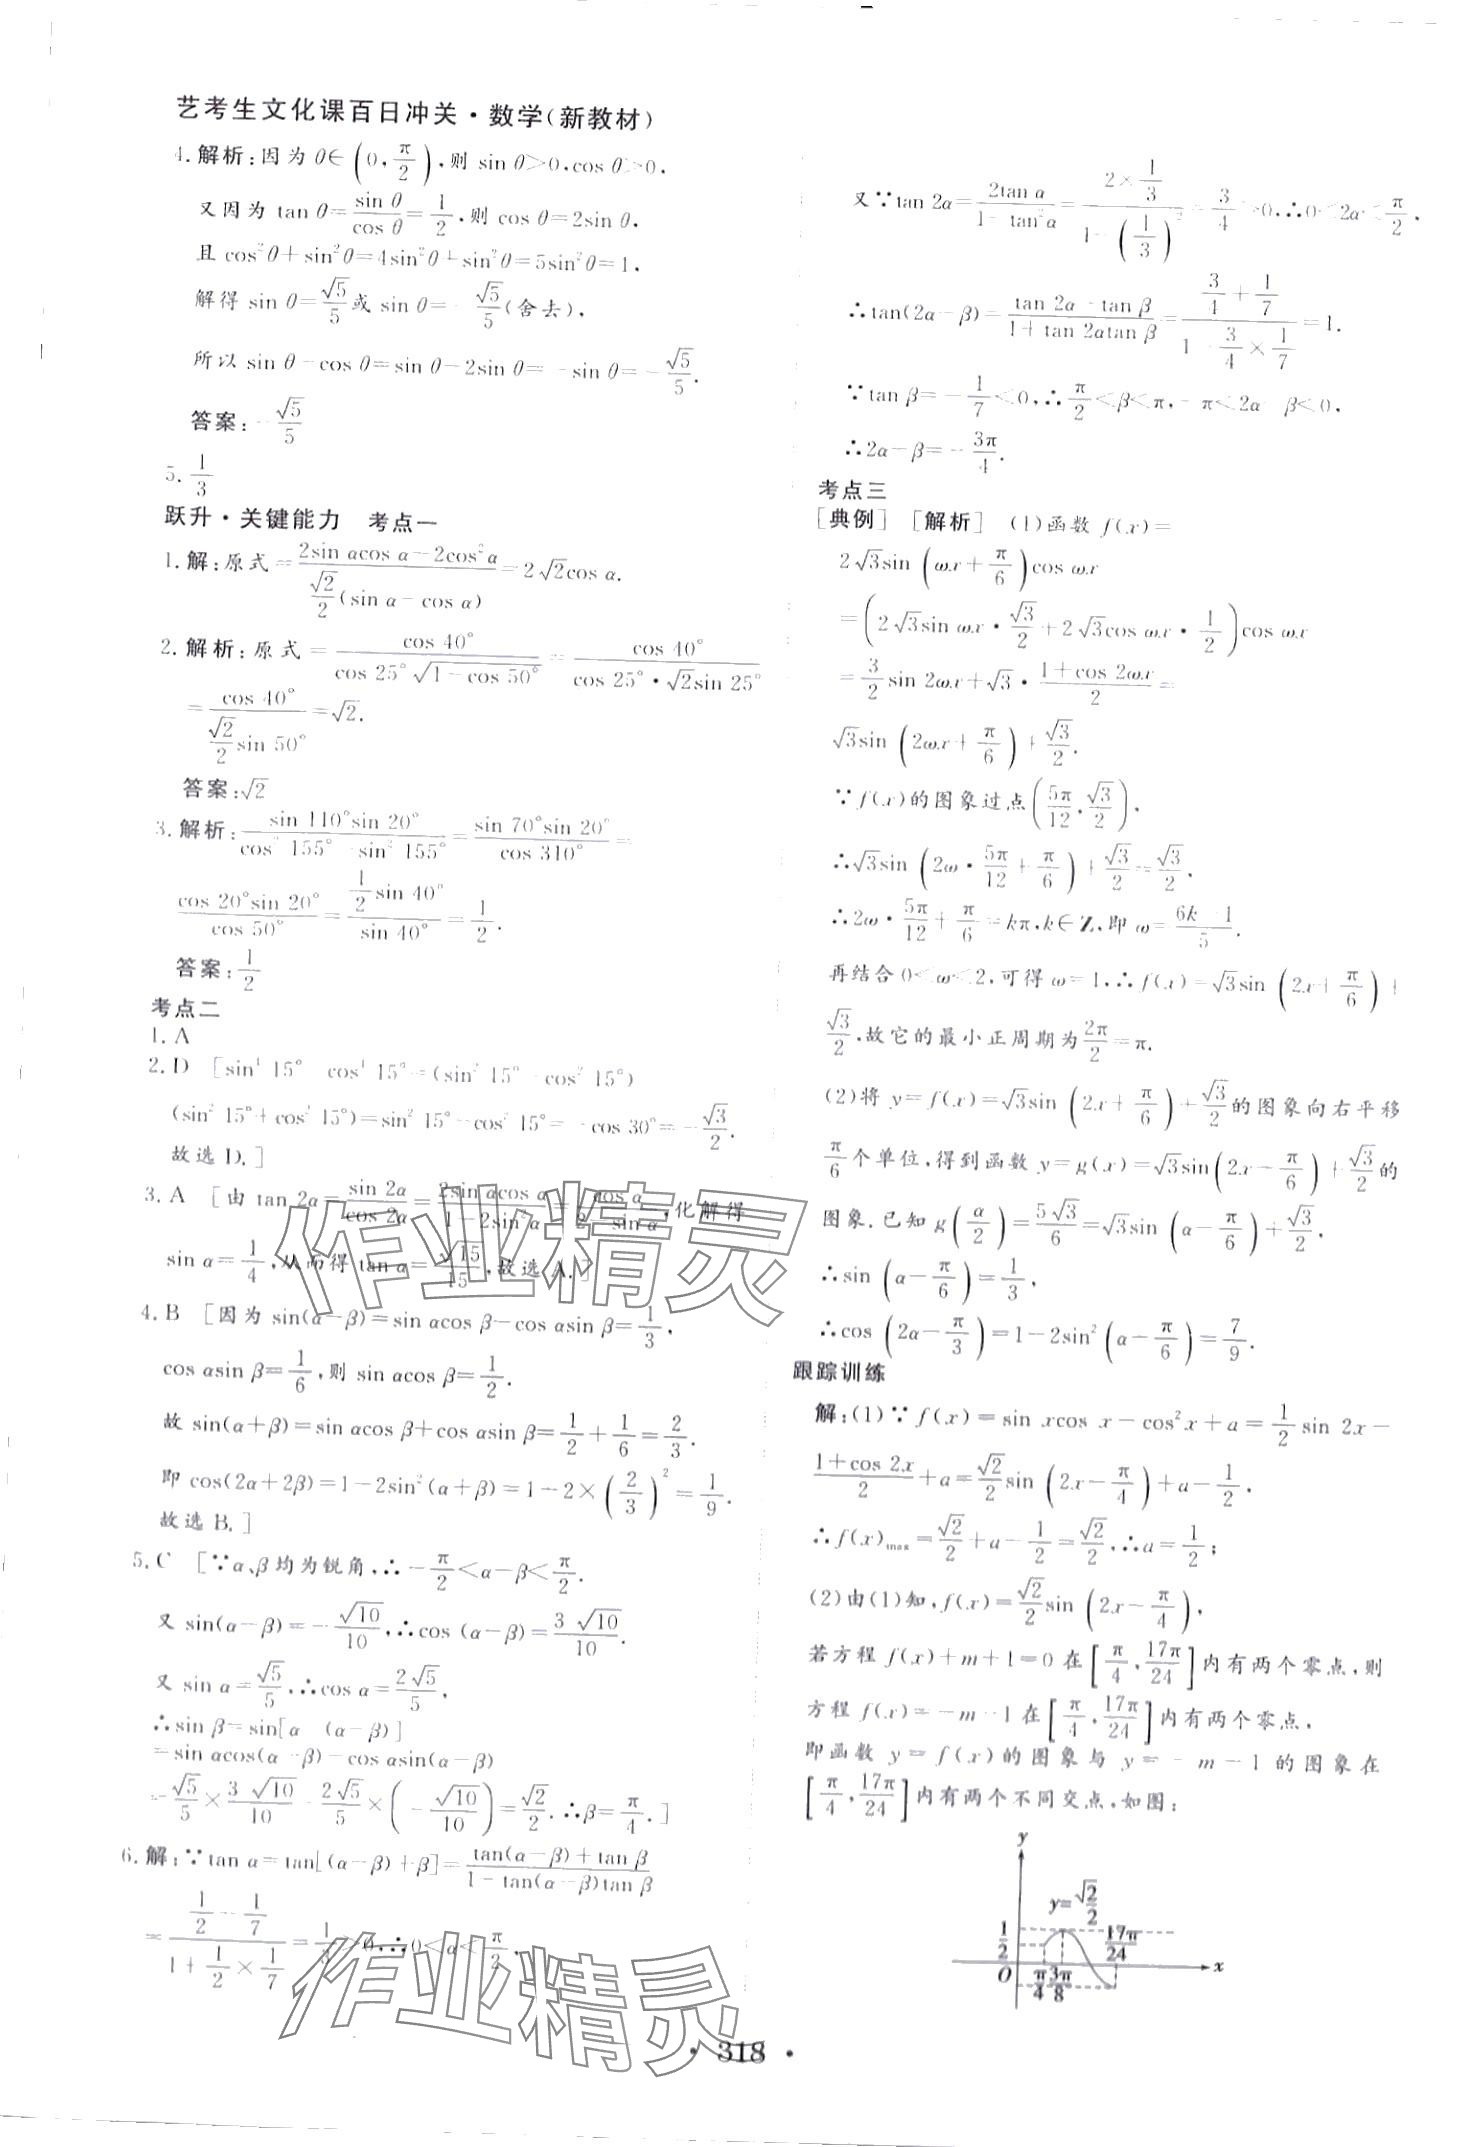 艺考生文化课百日冲关·数学(新教材)
4.解析:因为 θ∈(0,π/2),则 sin θ>0,cos θ>0.
又因为 tan θ=sin θ/cos θ=1/2,则 cos θ=2sin θ,
且 cos²θ+sin²θ=4sin²θ+sin²θ=5sin²θ=1,
解得 sin θ=√5/5或 sin θ=-√5/5(舍去),
所以 sin θ-cos θ=sin θ-2sin θ=-sin θ=-√5/5.
答案:-√5/5
5.1/3
跃升·关键能力 考点一
1.解:原式=(2sin αcos α-2cos²α)/(√2/2(sin α-cos α))=2√2cos α.
2.解析:原式=cos 40°/(cos 25°√(1-cos 50°))=cos 40°/(cos 25°·√2sin 25°)
=cos 40°/(√2/2 sin 50°)=√2.
答案:√2
3.解析:sin 110°sin 20°/(cos² 155°-sin² 155°)=sin 70°sin 20°/cos 310°=
cos 20°sin 20°/cos 50°=(1/2 sin 40°)/sin 40°=1/2.
答案:1/2
考点二
1.A
2.D [sin⁴ 15°-cos⁴ 15°=(sin² 15°-cos² 15°)
(sin² 15°+cos² 15°)=sin² 15°-cos² 15°=-cos 30°=-√3/2.
故选 D.]
3.A [由 tan 2α=sin 2α/cos 2α=2sin αcos α/(1-2sin²α)=cos α/(2-sin α),化解得
sin α=1/4,从而得 tan α=√15/15,故选 A.]
4.B [因为 sin(α-β)=sin αcos β-cos αsin β=1/3,
cos αsin β=1/6,则 sin αcos β=1/2.
故 sin(α+β)=sin αcos β+cos αsin β=1/2+1/6=2/3.
即 cos(2α+2β)=1-2sin²(α+β)=1-2×(2/3)²=1/9.
故选 B.]
5.C [∵α、β均为锐角,∴-π/2<α-β<π/2.
又 sin(α-β)=-√10/10,∴cos (α-β)=3√10/10.
又 sin α=√5/5,∴cos α=2√5/5,
∴sin β=sin[α-(α-β)]
=sin αcos(α-β)-cos αsin(α-β)
=√5/5×3√10/10-2√5/5×(-√10/10)=√2/2.∴β=π/4.]
6.解:∵tan α=tan[(α-β)+β]=(tan(α-β)+tan β)/(1-tan(α-β)tan β)
=(1/2-1/7)/(1+1/2×1/7)=1/3>0,∴0<α<π/2,
又∵tan 2α=2tan α/(1-tan²α)=(2×1/3)/(1-(1/3)²)=3/4>0,∴0<2α<π/2,
∴tan(2α-β)=(tan 2α-tan β)/(1+tan 2αtan β)=(3/4+1/7)/(1-3/4×1/7)=1.
∵tan β=-1/7<0,∴π/2<β<π,-π<2α-β<0,
∴2α-β=-3π/4.
考点三
[典例] [解析] (1)函数 f(x)=
2√3sin(ωx+π/6)cos ωx
=(2√3sin ωx·√3/2+2√3cos ωx·1/2)cos ωx
=3/2 sin 2ωx+√3·(1+cos 2ωx)/2=
√3sin(2ωx+π/6)+√3/2.
∵f(x)的图象过点(5π/12,√3/2),
∴√3sin(2ω·5π/12+π/6)+√3/2=√3/2,
∴2ω·5π/12+π/6=kπ,k∈Z,即 ω=(6k-1)/5.
再结合 0<ω<2,可得 ω=1,∴f(x)=√3sin(2x+π/6)+
√3/2,故它的最小正周期为2π/2=π.
(2)将 y=f(x)=√3sin(2x+π/6)+√3/2的图象向右平移
π/6个单位,得到函数 y=g(x)=√3sin(2x-π/6)+√3/2的
图象.已知 g(α/2)=5√3/6=√3sin(α-π/6)+√3/2,
∴sin(α-π/6)=1/3,
∴cos(2α-π/3)=1-2sin²(α-π/6)=7/9.
跟踪训练
解:(1)∵f(x)=sin xcos x-cos²x+a=1/2 sin 2x-
(1+cos 2x)/2+a=√2/2 sin(2x-π/4)+a-1/2,
∴f(x)max=√2/2+a-1/2=√2/2,∴a=1/2;
(2)由(1)知,f(x)=√2/2 sin(2x-π/4),
若方程 f(x)+m+1=0 在[π/4,17π/24]内有两个零点,则
方程 f(x)=-m-1在[π/4,17π/24]内有两个零点,
即函数 y=f(x)的图象与 y=-m-1 的图象在
[π/4,17π/24]内有两个不同交点,如图:
y
y=√2/2
1/2
17π/24
O
π/4
3π/8
x
·318·
作业精灵
作业精灵